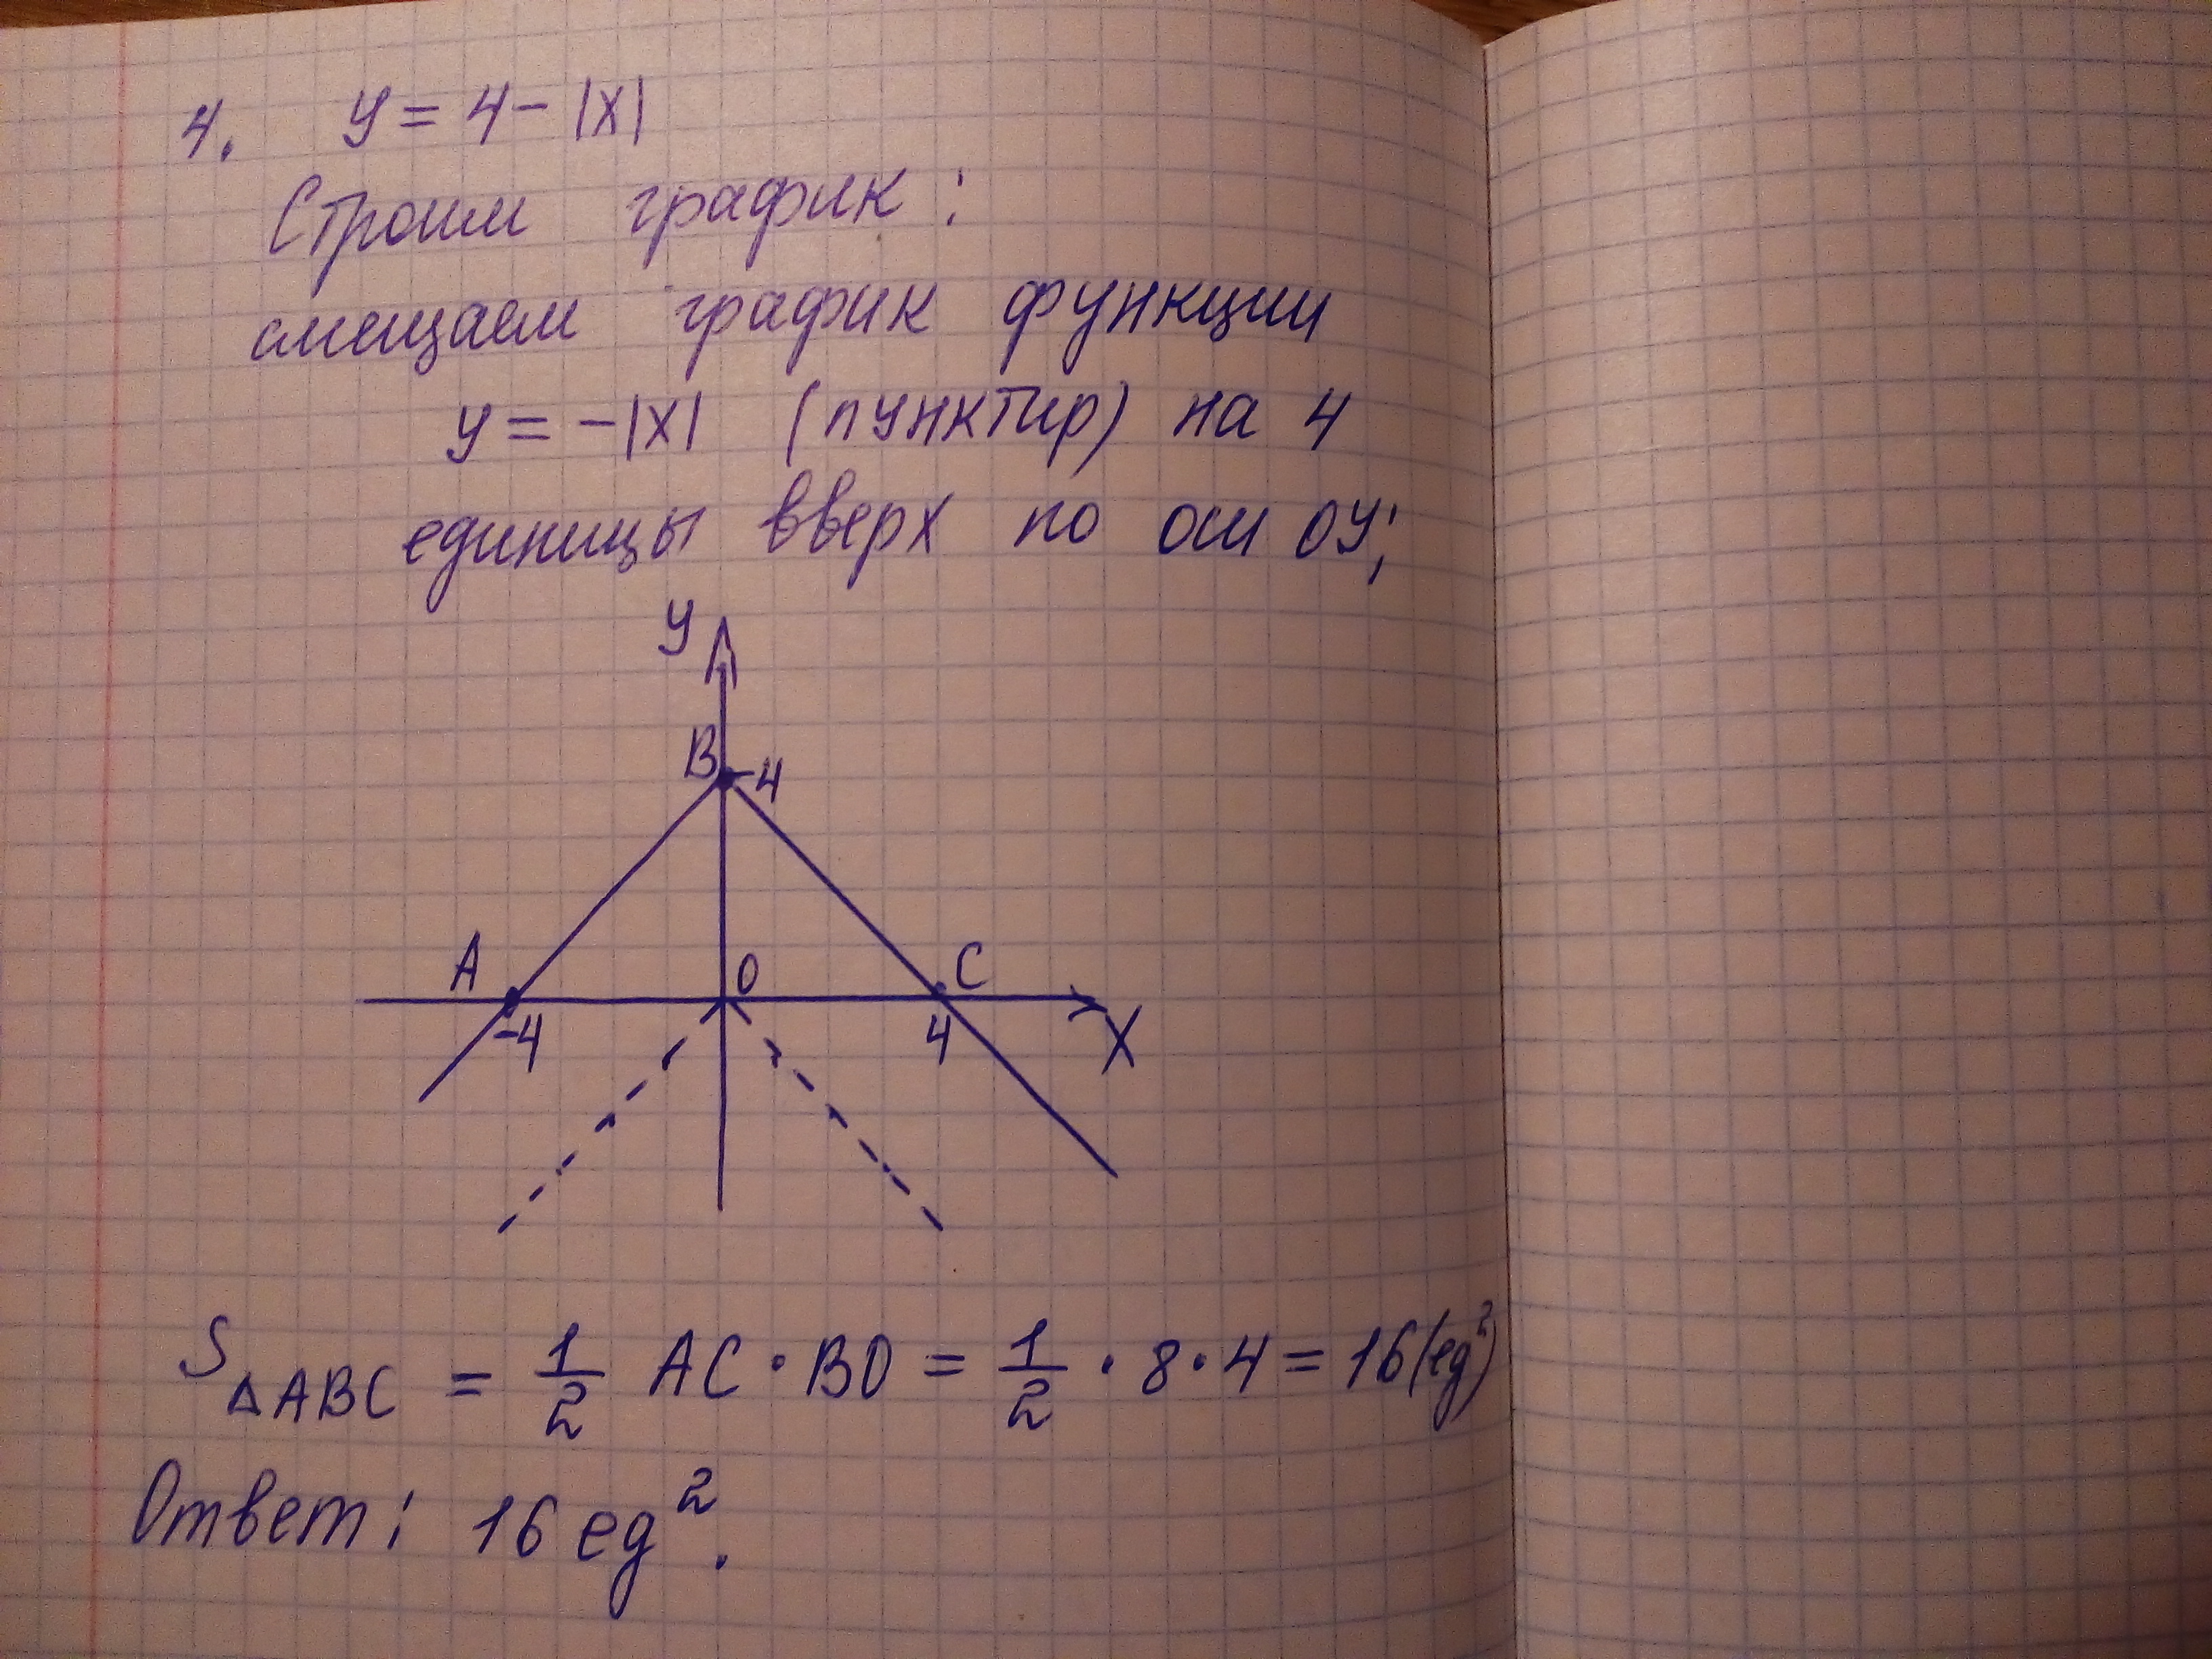 4. y = 4 - |x|
Строим график:
смещаем график функции
y = -|x| (пунктир) на 4
единицы вверх по оси OY;
y
B 4
A O C
-4 4 X
S△ABC = 1/2 AC · BO = 1/2 · 8 · 4 = 16 (ед²)
Ответ: 16 ед².